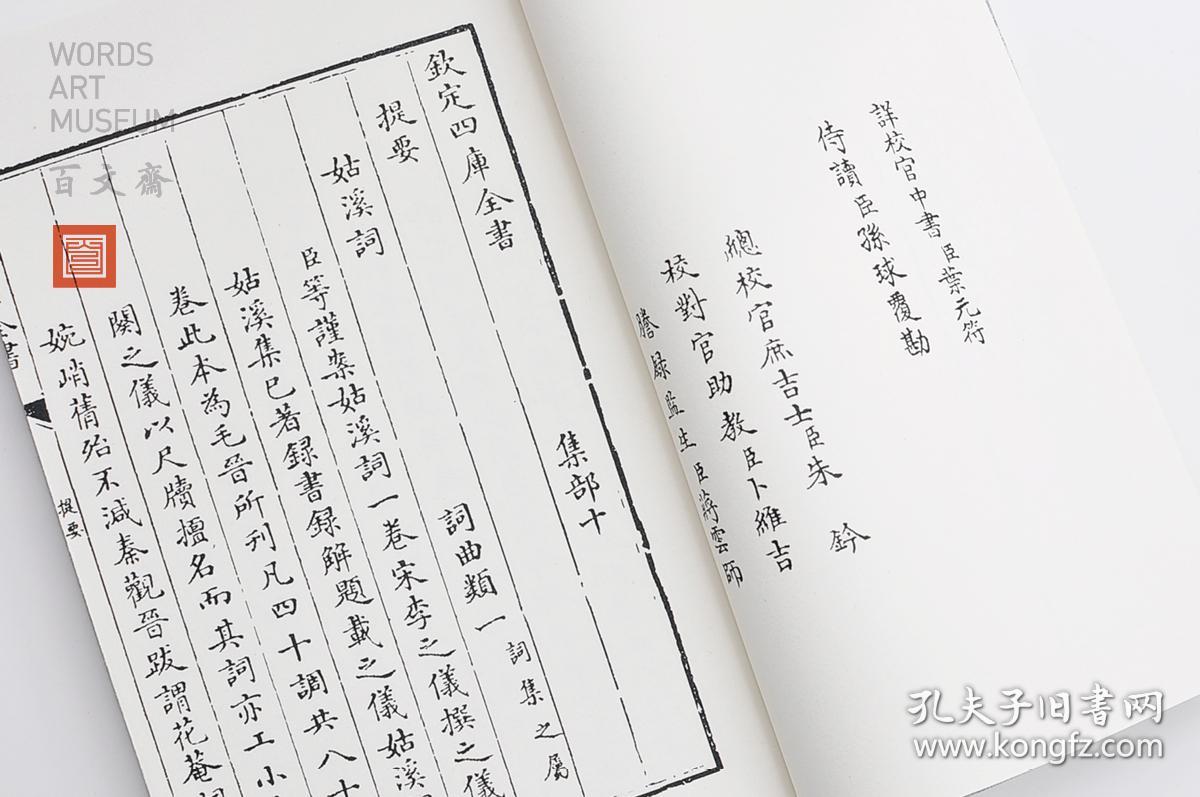 WORDS
ART
MUSEUM
百文齋
詳校官中書臣葉元符
侍讀臣孫球覆勘
總校官庶吉士臣朱鈐
校對官助教臣卜維吉
謄錄監生臣蔣雲師
欽定四庫全書 集部十
提要 詞曲類一 詞集之屬
姑溪詞
臣等謹案姑溪詞一卷宋李之儀撰之儀
姑溪集已著録書録解題載之儀姑溪
卷此本為毛晉所刊凡四十調共八十
闋之儀以尺牘擅名而其詞亦工小
婉峭蒨殆不減秦觀晉跋謂花菴詞
提要
全書
孔夫子旧书网
www.kongfz.com